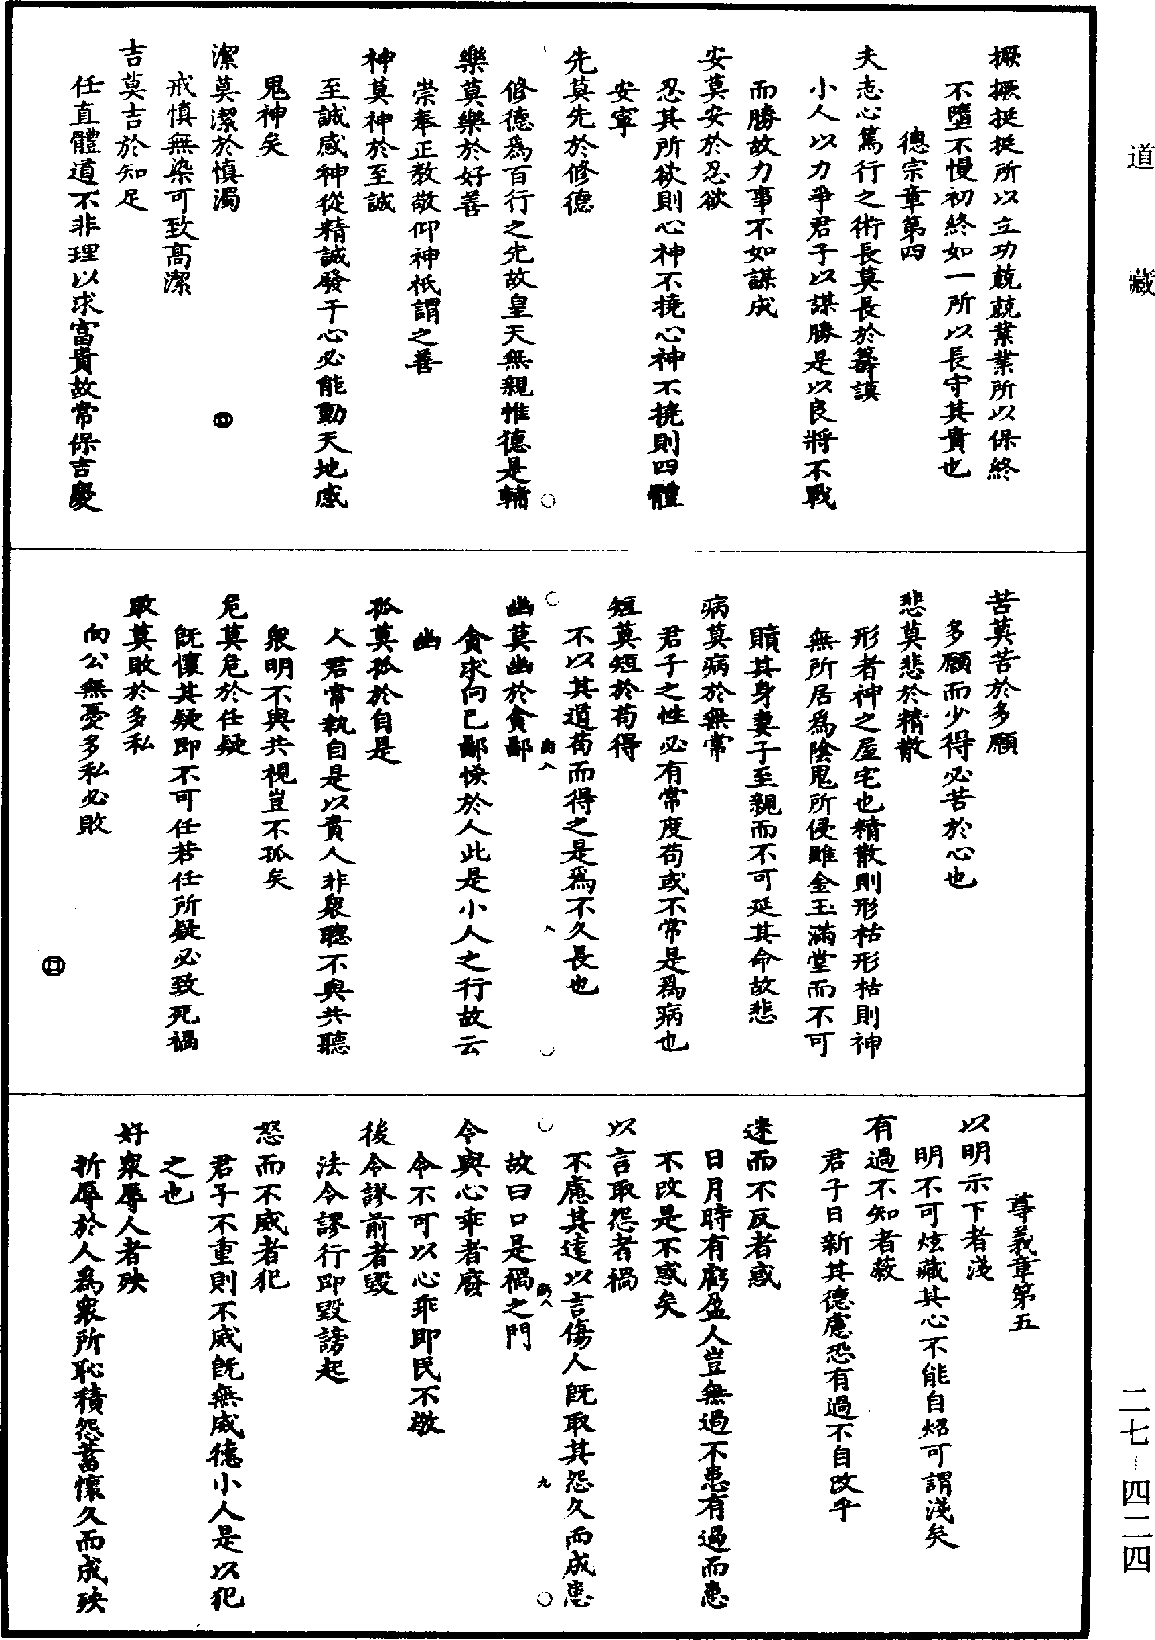 道藏
橛橛挺挺所以立功兢兢業業所以保終
不墮不慢初終如一所以長守其貴也
德宗章第四
夫志心篤行之術長莫長於籌謨
小人以力爭君子以謀勝是以良將不戰
而勝故力事不如謀成
安莫安於忍欲
忍其所欲則心神不撓心神不撓則四體
安寧
先莫先於修德
修德為百行之先故皇天無親惟德是輔
樂莫樂於好善
崇奉正教敬仰神祇謂之善
神莫神於至誠
至誠感神從精誠發于心必能動天地感
鬼神矣
潔莫潔於慎濁
戒慎無染可致高潔
吉莫吉於知足
任直體道不非理以求富貴故常保吉慶
苦莫苦於多願
多願而少得必苦於心也
悲莫悲於精散
形者神之屋宅也精散則形枯形枯則神
無所居為陰鬼所侵雖金玉滿堂而不可
贖其身妻子至親而不可延其命故悲
病莫病於無常
君子之性必有常度苟或不常是為病也
短莫短於苟得
不以其道苟而得之是為不久長也
幽莫幽於貪鄙
貪求向已鄙悋於人此是小人之行故云
幽
孤莫孤於自是
人君常執自是以責人非眾聰不與共聽
眾明不與共視豈不孤矣
危莫危於任疑
既懷其疑即不可任若任所疑必致死禍
敗莫敗於多私
向公無憂多私必敗
尊義章第五
以明示下者淺
明不可炫藏其心不能自炤可謂淺矣
有過不知者蔽
君子日新其德慮恐有過不自改乎
迷而不反者惑
日月時有虧盈人豈無過不患有過而患
不改是不惑矣
以言取怨者禍
不慮其遠以言傷人既取其怨久而成患
故曰口是禍之門
令與心乖者廢
令不可以心乖即民不敬
後令謬前者毀
法令謬行即毀謗起
怒而不威者犯
君子不重則不威既無威德小人是以犯
之也
好眾辱人者殃
折辱於人為眾所恥積怨蓄懷久而成殃
二七–四二四